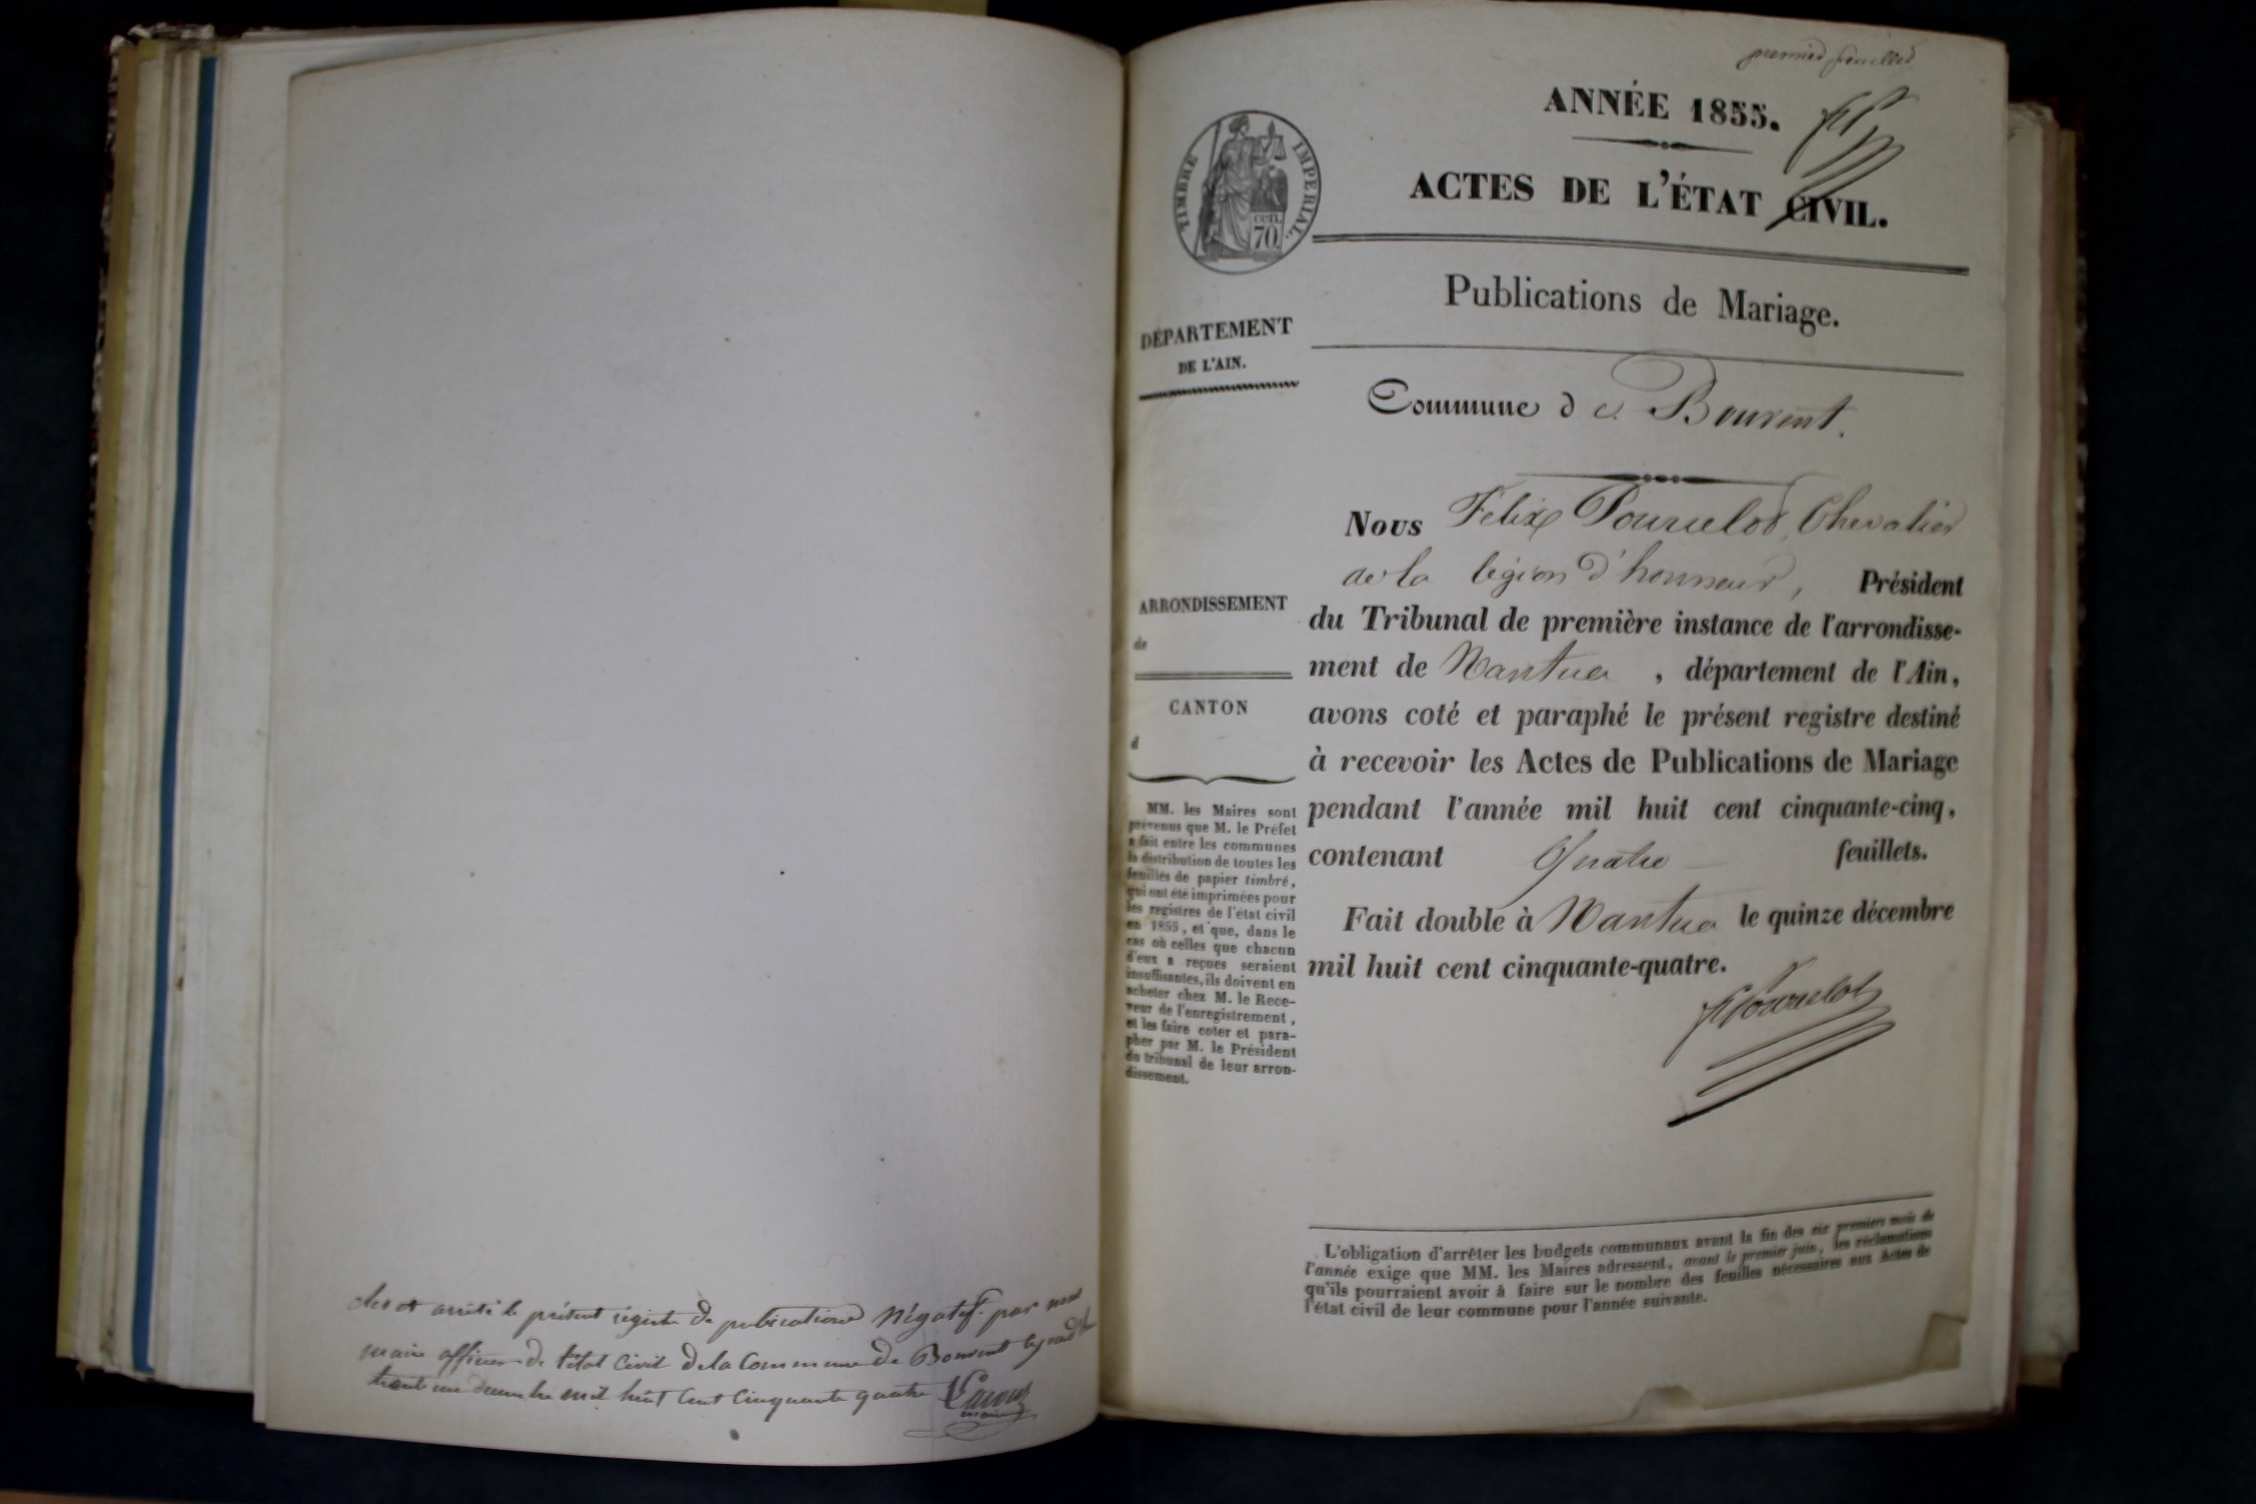 clos et arrêté le présent régistre de publications Négatif. par nous
maire officier de l'état Civil de la Commune de Bouvent
trente un decembre mil huit Cent Cinquante quatre
maire
premier feuillet
ANNÉE 1855.
ACTES DE L'ÉTAT CIVIL.
TIMBRE IMPERIAL.
cen.
70
Publications de Mariage.
DÉPARTEMENT
DE L'AIN.
Commune de Bouvent.
Nous Félix Pourcelot, Chevalier
de la légion d'honneur, Président
du Tribunal de première instance de l'arrondisse-
ment de Nantua, département de l'Ain,
avons coté et paraphé le présent registre destiné
à recevoir les Actes de Publications de Mariage
pendant l'année mil huit cent cinquante-cinq,
contenant Quatre feuillets.
Fait double à Nantua le quinze décembre
mil huit cent cinquante-quatre.
FPourcelot
ARRONDISSEMENT
de
CANTON
d
MM. les Maires sont
prévenus que M. le Préfet
a fait entre les communes
la distribution de toutes les
feuilles de papier timbré,
qui ont été imprimées pour
les registres de l'état civil
en 1855, et que, dans le
cas où celles que chacun
d'eux a reçues seraient
insuffisantes, ils doivent en
acheter chez M. le Rece-
veur de l'enregistrement,
et les faire coter et para-
pher par M. le Président
du tribunal de leur arron-
dissement.
L'obligation d'arrêter les budgets communaux avant la fin des six premiers mois de
l'année exige que MM. les Maires adressent, avant le premier juin, les réclamations
qu'ils pourraient avoir à faire sur le nombre des feuilles nécessaires aux Actes de
l'état civil de leur commune pour l'année suivante.